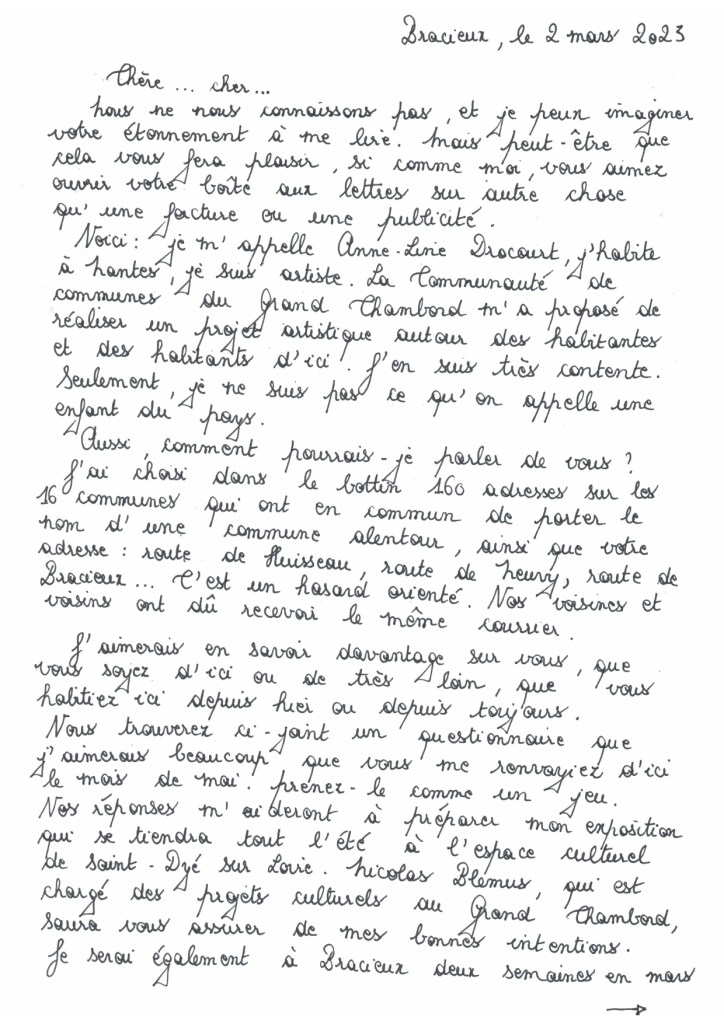 Bracieux, le 2 mars 2023
Chère ... cher ...
Nous ne nous connaissons pas, et je peux imaginer
votre étonnement à me lire. Mais peut-être que
cela vous fera plaisir, si comme moi, vous aimez
ouvrir votre boîte aux lettres sur autre chose
qu'une facture ou une publicité.
Voici : je m'appelle Anne-Line Drocourt, j'habite
à Nantes, je suis artiste. La Communauté de
communes du Grand Chambord m'a proposé de
réaliser un projet artistique autour des habitantes
et des habitants d'ici. J'en suis très contente.
Seulement, je ne suis pas ce qu'on appelle une
enfant du pays.
Aussi, comment pourrais-je parler de vous ?
J'ai choisi dans le bottin 160 adresses sur les
16 communes qui ont en commun de porter le
nom d'une commune alentour, ainsi que votre
adresse : route de Huisseau, route de Neuvy, route de
Bracieux ... C'est un hasard orienté. Vos voisines et
voisins ont dû recevoir le même courrier.
J'aimerais en savoir davantage sur vous, que
vous soyez d'ici ou de très loin, que vous
habitiez ici depuis hier ou depuis toujours.
Vous trouverez ci-joint un questionnaire que
j'aimerais beaucoup que vous me renvoyiez d'ici
le mois de mai. Prenez-le comme un jeu.
Vos réponses m'aideront à préparer mon exposition
qui se tiendra tout l'été à l'espace culturel
de Saint-Dyé sur Loire. Nicolas Blémus, qui est
chargé des projets culturels au Grand Chambord,
saura vous assurer de mes bonnes intentions.
Je serai également à Bracieux deux semaines en mars
→